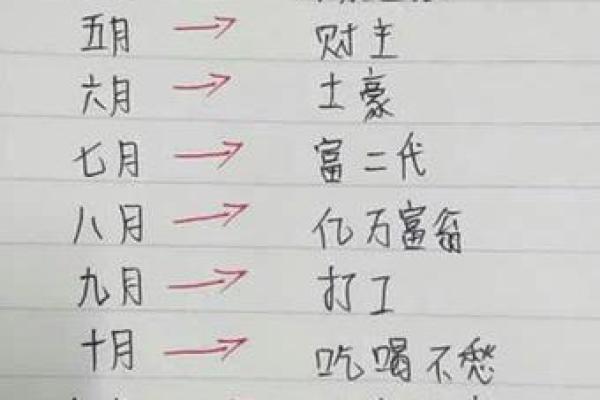 五月 → 财主
六月 → 土豪
七月 → 富二代
八月 → 亿万富翁
九月 → 打工
十月 → 吃喝不愁